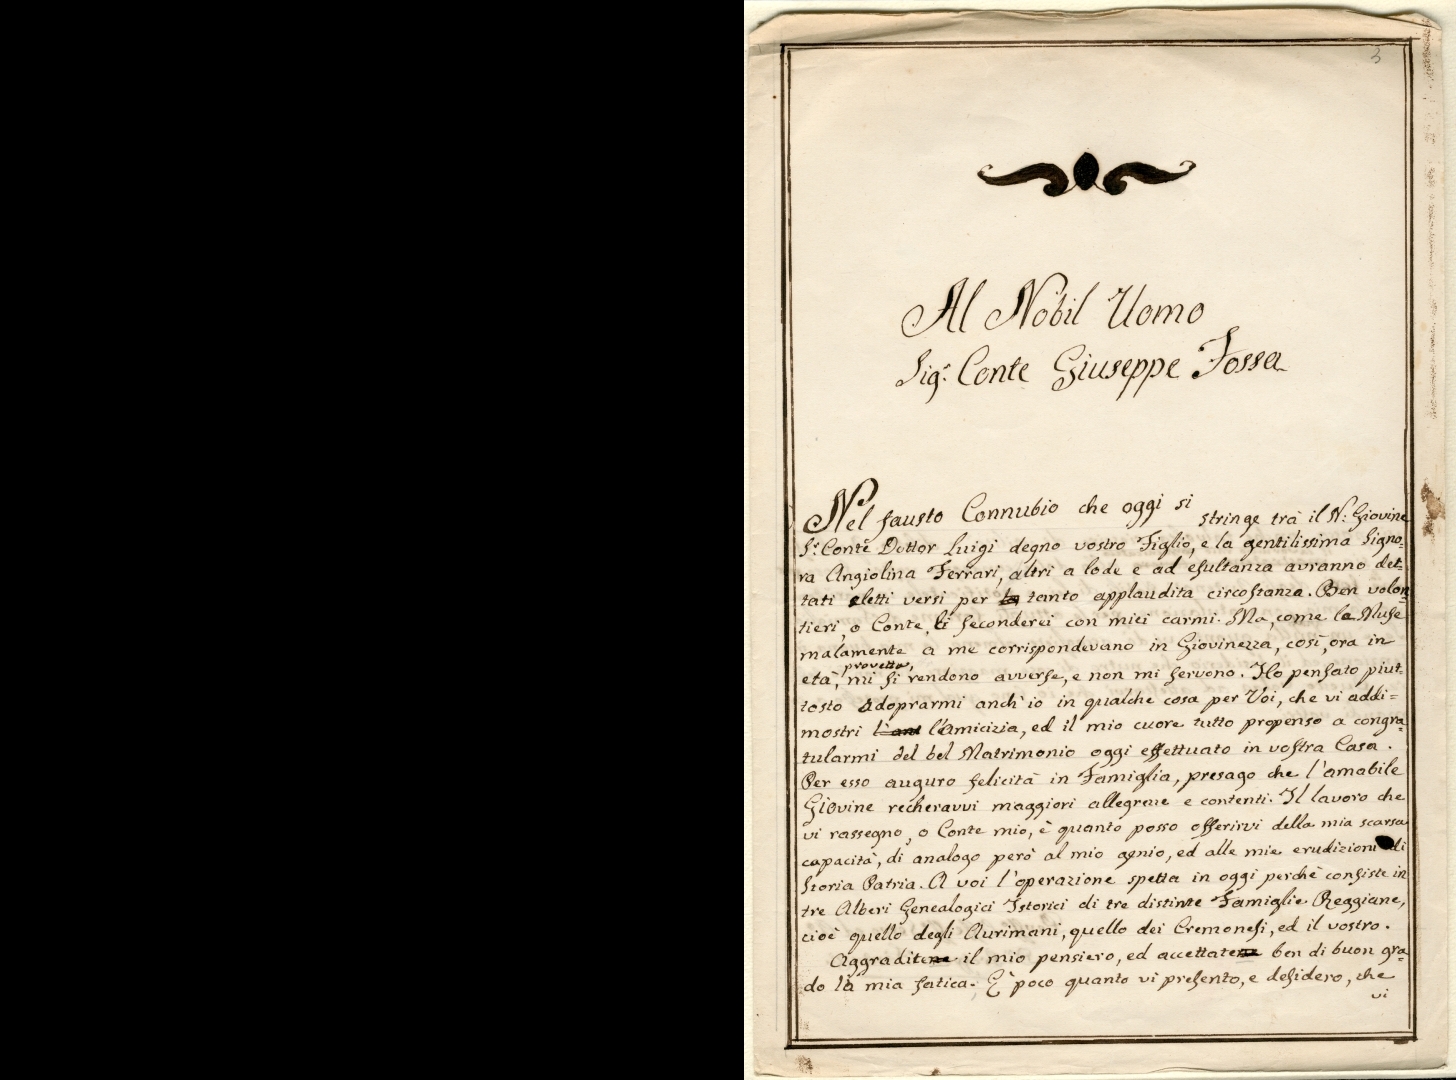 3
Al Nobil Uomo
Sig.r Conte Giuseppe Fossa
Nel fausto Connubio che oggi si stringe trà il N: Giovine
S.r Conte Dottor Luigi degno vostro Figlio, e la gentilissima Signo=
ra Angiolina Ferrari, altri a lode e ad esultanza avranno det=
tati eletti versi per la tanto applaudita circostanza. Ben volon=
tieri, o Conte, li seconderei con miei carmi. Ma, come le Muse
malamente a me corrispondevano in Giovinezza, così, ora in
provetta,
età, mi si rendono avverse, e non mi servono. Ho pensato piut=
tosto adoprarmi anch' io in qualche cosa per Voi, che vi addi=
mostri l'amicizia, ed il mio cuore tutto propenso a congra=
tularmi del bel Matrimonio oggi effettuato in vostra Casa.
Per esso auguro felicità in Famiglia, presago che l'amabile
Giovine recheravvi maggiori allegrezze e contenti. Il lavoro che
vi rassegno, o Conte mio, è quanto posso offerirvi della mia scarsa
capacità, di analogo però al mio genio, ed alle mie erudizioni di
Storia Patria. A voi l'operazione spetta in oggi perchè consiste in
tre Alberi Genealogici Istorici di tre distinte Famiglie Reggiane,
cioè quello degli Aurimani, quello dei Cremonesi, ed il vostro.
Aggradite il mio pensiero, ed accettate ben di buon gra=
do la mia fatica. È poco quanto vi presento, e desidero, che
vi